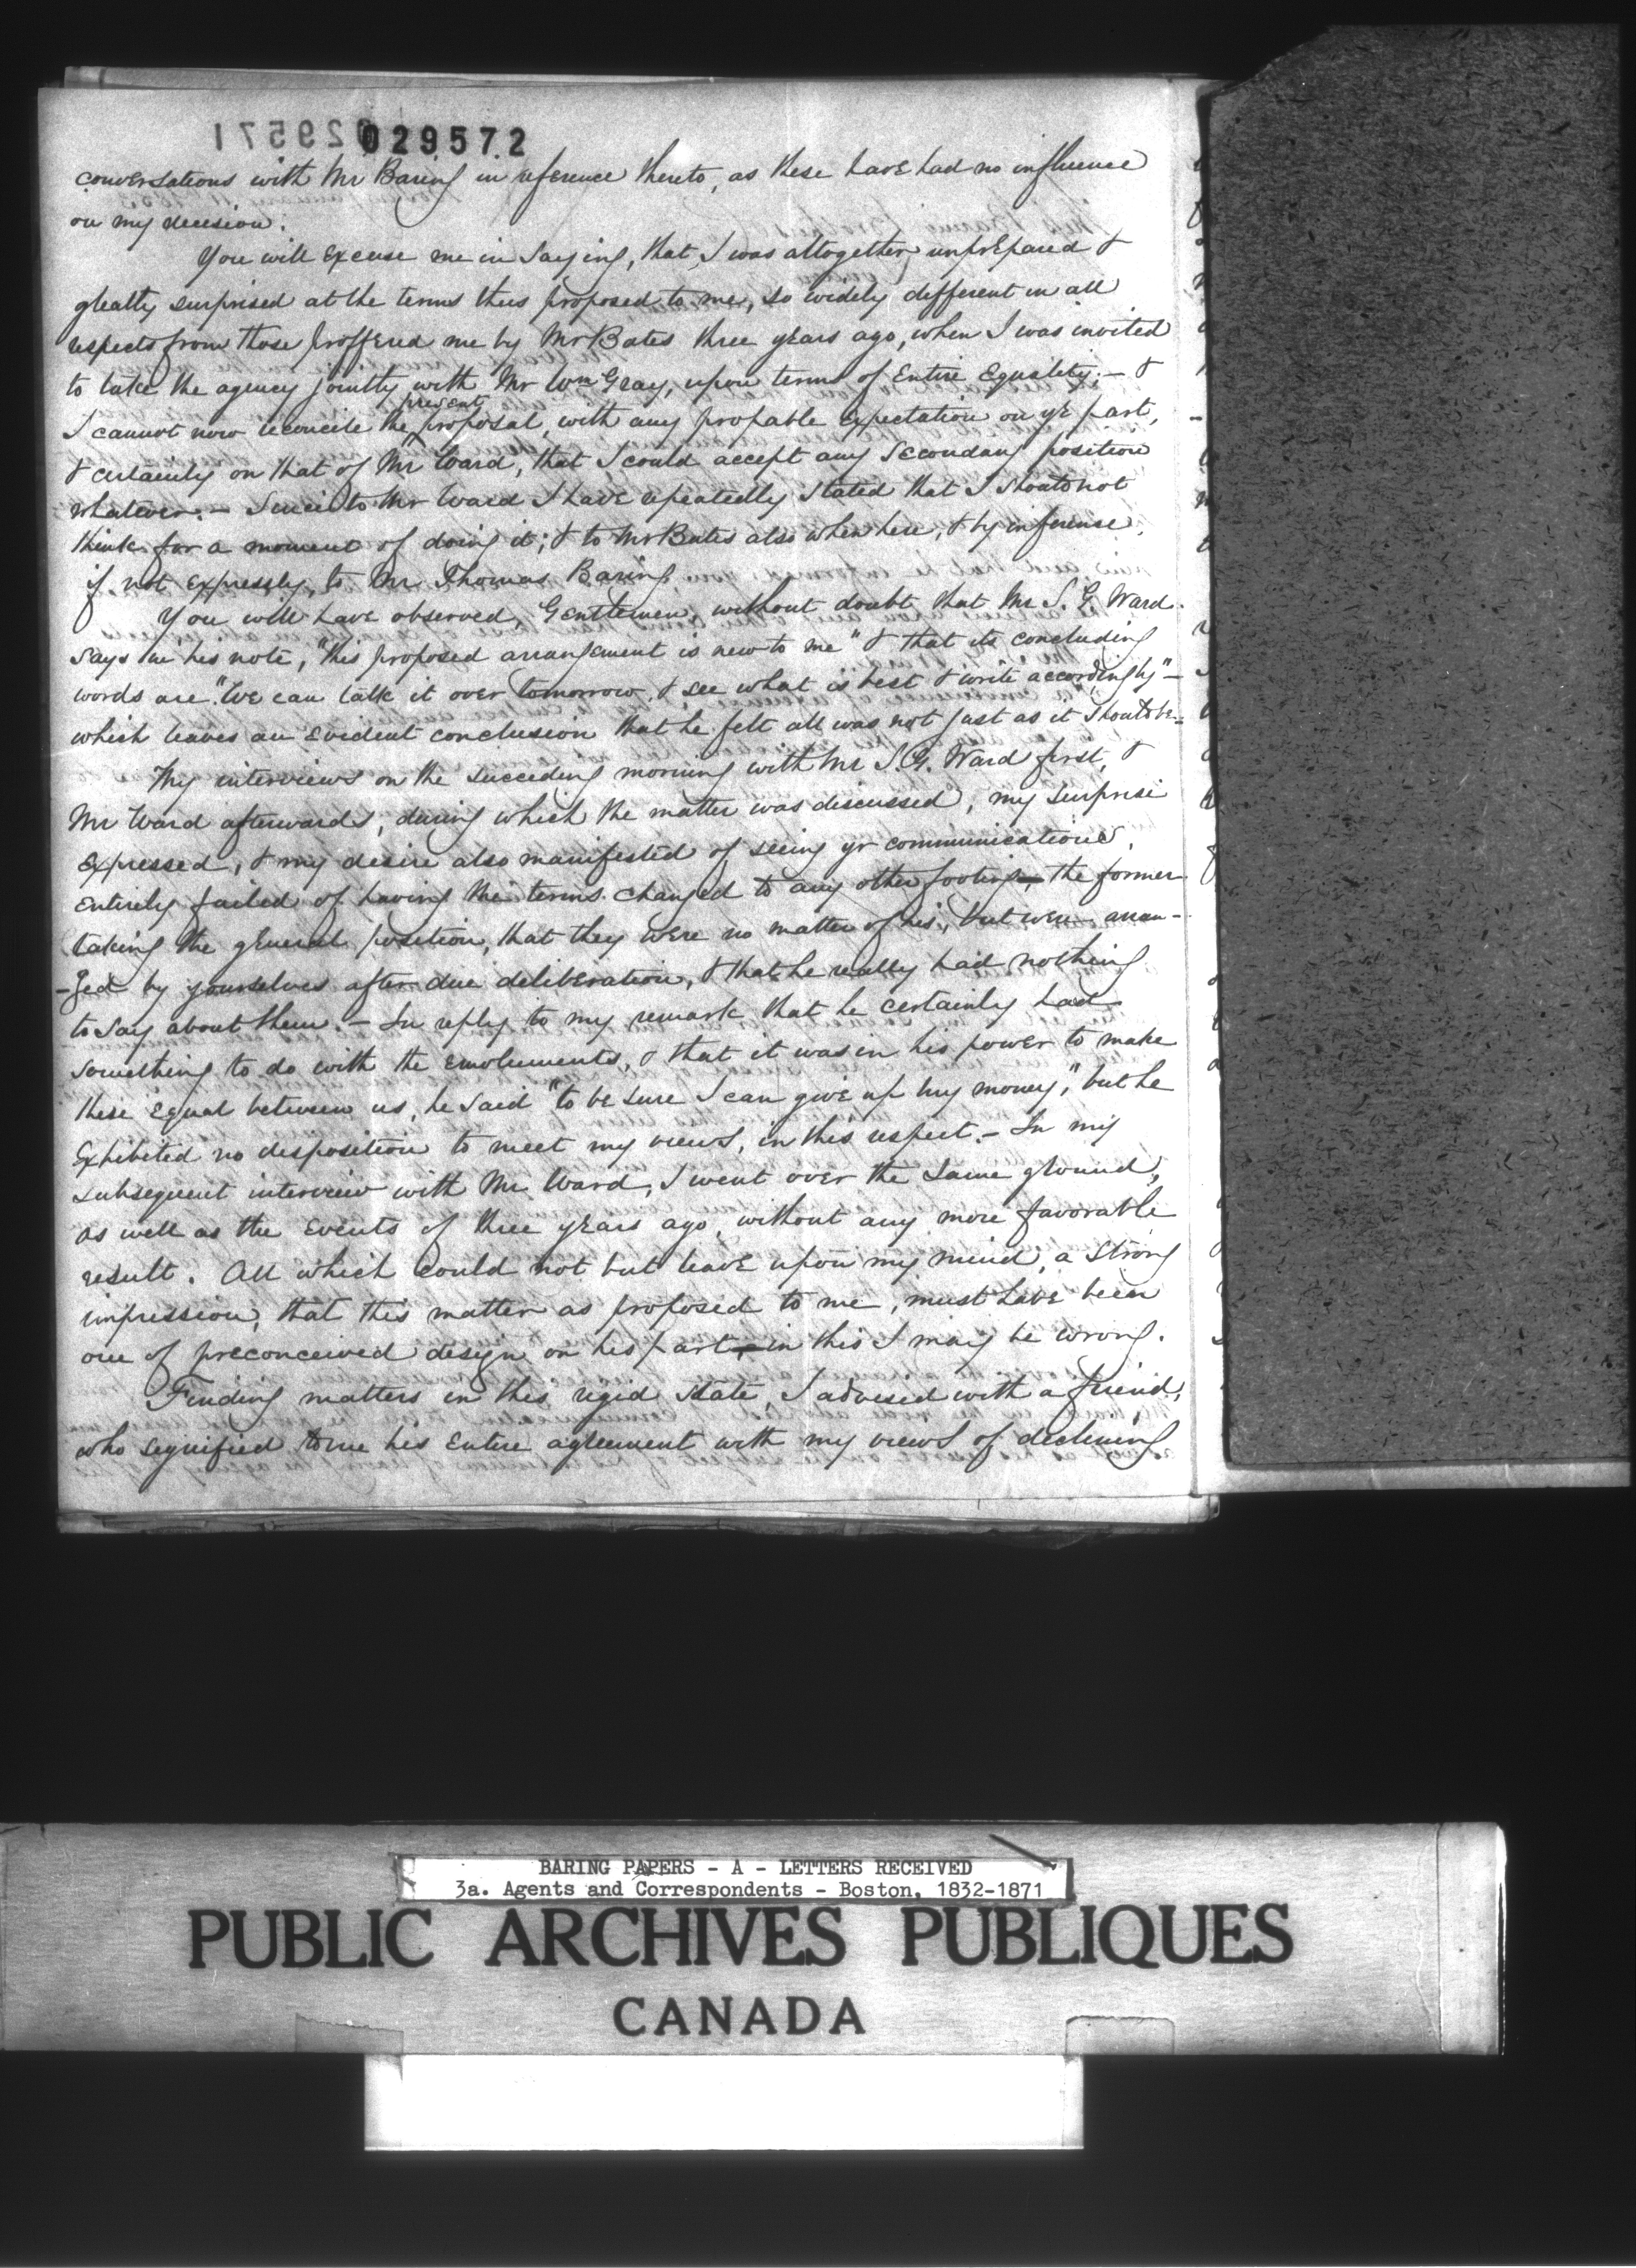 029572
conversations with Mr Baring in reference thereto, as these have had no influence
on my decision.
You will excuse me in saying, that, I was altogether unprepared &
greatly surprised at the terms thus proposed to me, so widely different in all
respects from those proffered me by Mr Bates three years ago, when I was invited
to take the agency jointly with Mr Wm Gray, upon terms of Entire Equality; - &
I cannot now reconcile the present proposal, with any propable expectation on yr part,
& certainly on that of Mr Ward, that I could accept any Secondary position
whatever. - Since to Mr Ward I have repeatedly stated that I should not
think for a moment of doing it; & to Mr Bates also when here, & by inference,
if not expressly, to Mr Thomas Baring.
You will have observed, Gentlemen, without doubt that Mr S. G. Ward
says in his note, "this proposed arrangement is new to me" & that its concluding
words are "We can talk it over tomorrow, & see what is best & write accordingly" -
which leaves an Evident conclusion that he felt all was not just as it should be.
My interviews on the succeding morning with Mr S. G. Ward first, &
Mr Ward afterwards, during which the matter was discussed, my surprise
expressed, & my desire also manifested of seeing yr communications,
entirely failed of having the terms changed to any other footing, the former
taking the general position, that they were no matter of his, but were arran-
-ged by yourselves after due deliberation, & that he really had nothing
to say about them. - In reply to my remark that he certainly had
something to do with the emoluments, & that it was in his power to make
these equal between us, he said "to be sure I can give up my money," but he
Exhibited no disposition to meet my views, in this respect. - In my
subsequent interview with Mr Ward, I went over the same ground,
as well as the Events of three years ago, without any more favorable
result. All which could not but leave upon my mind, a strong
impression, that this matter as proposed to me, must have been
one of preconceived design on his part, in this I may be wrong.
Finding matters in this rigid state, I advised with a friend,
who signified to me his Entire agreement with my views of declining
BARING PAPERS - A - LETTERS RECEIVED
3a. Agents and Correspondents - Boston, 1832-1871
PUBLIC ARCHIVES PUBLIQUES
CANADA